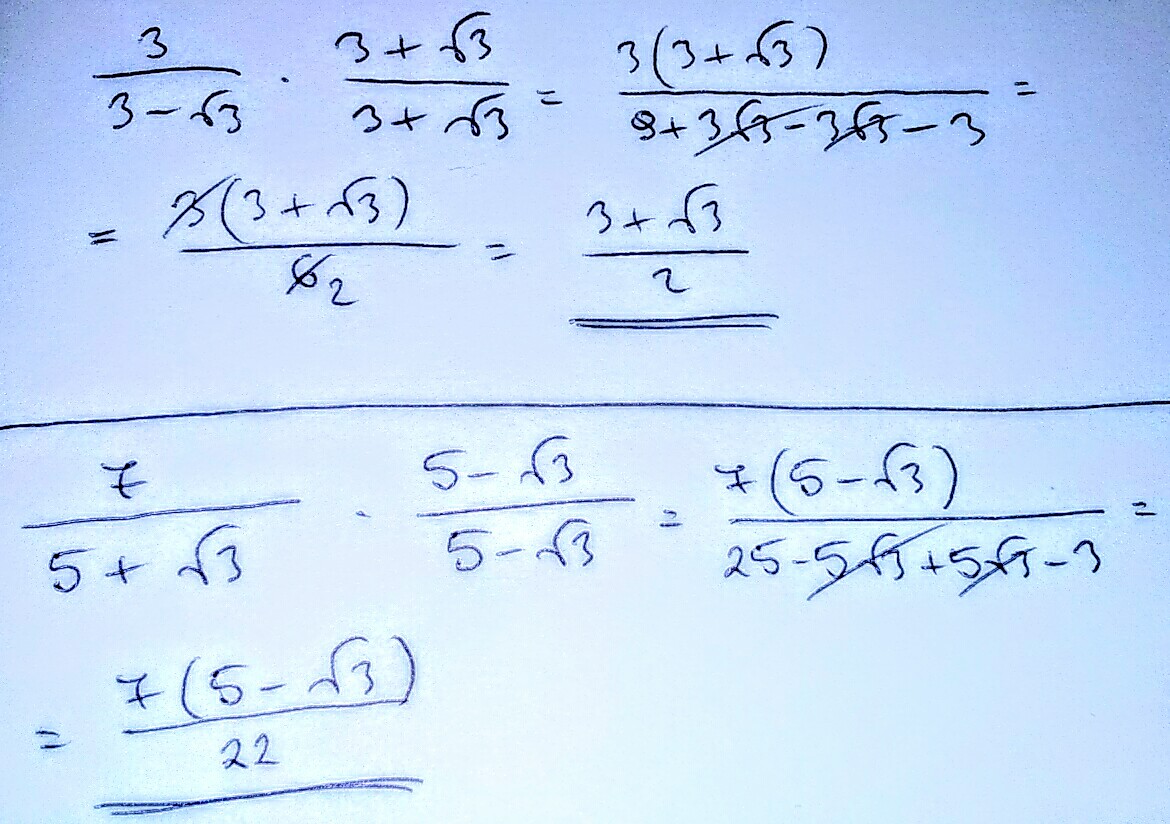 3/(3-√3) · (3+√3)/(3+√3) = 3(3+√3)/(9+3√3-3√3-3) =
= 3(3+√3)/6 2 = (3+√3)/2
7/(5+√3) · (5-√3)/(5-√3) = 7(5-√3)/(25-5√3+5√3-3) =
= 7(5-√3)/22